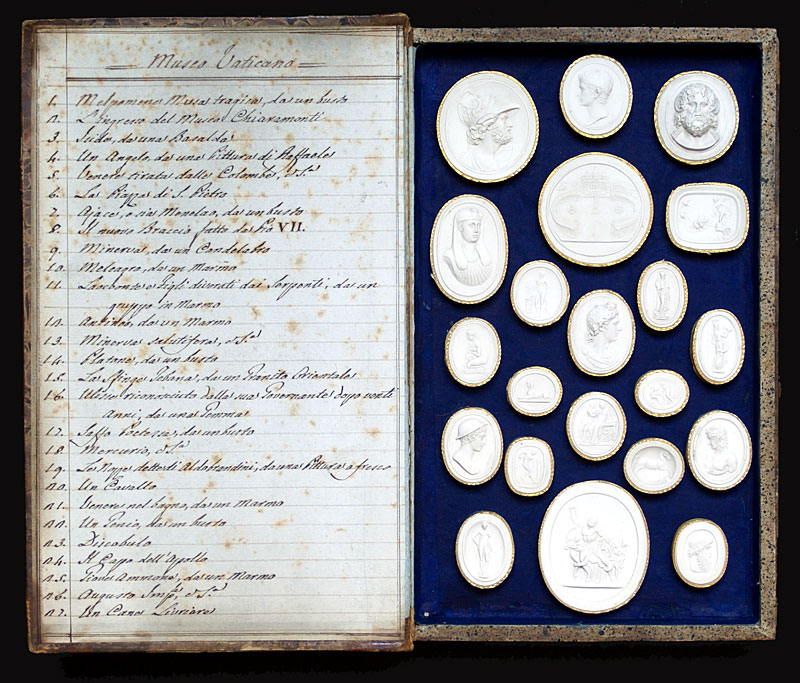 Museo Vaticano
1. Melpomene Musa tragica, da un busto
2. L'Ingreso del Museo Chiaramonti
3. Giuda, da una Basalde
4. Un Angelo, da una Pittura di Raffaele
5. Venere tirata dalle Colombe, &
6. La Piazza di S. Pietro
7. Ajace, o sia Menelao, da un busto
8. Il nuovo Braccio fatto da Pio VII.
9. Minerva, da un Candelabro
10. Meleagro, da un Marmo
11. Laocoonte e Figli divorati dai Serpenti, da un
gruppo in Marmo
12. Antinoo, da un Marmo
13. Minerva salutifera,
14. Platone, da un busto
15. La Sfinge Tebana, da un Granito Orientale
16. Ulisse riconosciuto dalla sua Governante dopo venti
Anni, da una Gemma
17. Saffo Poetessa, da un busto
18. Mercurio,
19. Le Nozze dette di Aldobrandini, da una Pittura a fresco
20. Un Cavallo
21. Venere nel bagno, da un Marmo
22. Un Genio, da un busto
23. Discobulo
24. Il Capo dell'Apollo
25. Giove Ammone, da un Marmo
26. Augusto
27. Un Cane Livriere